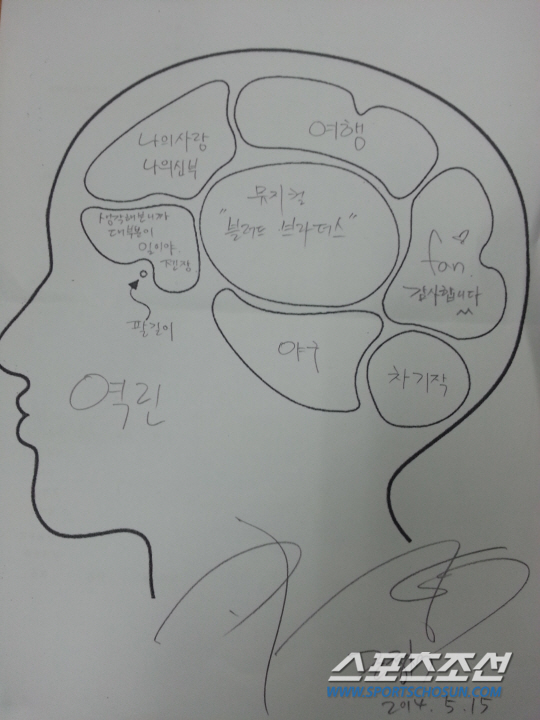 나의사랑
나의신부
여행
뮤지컬
"블러드 브라더스"
생각해보니까
대부분이
일이야.
젠장
fan.
감사합니다
팔길이
야구
차기작
역린
스포츠조선
WWW.SPORTSCHOSUN.COM
2014. 5. 15